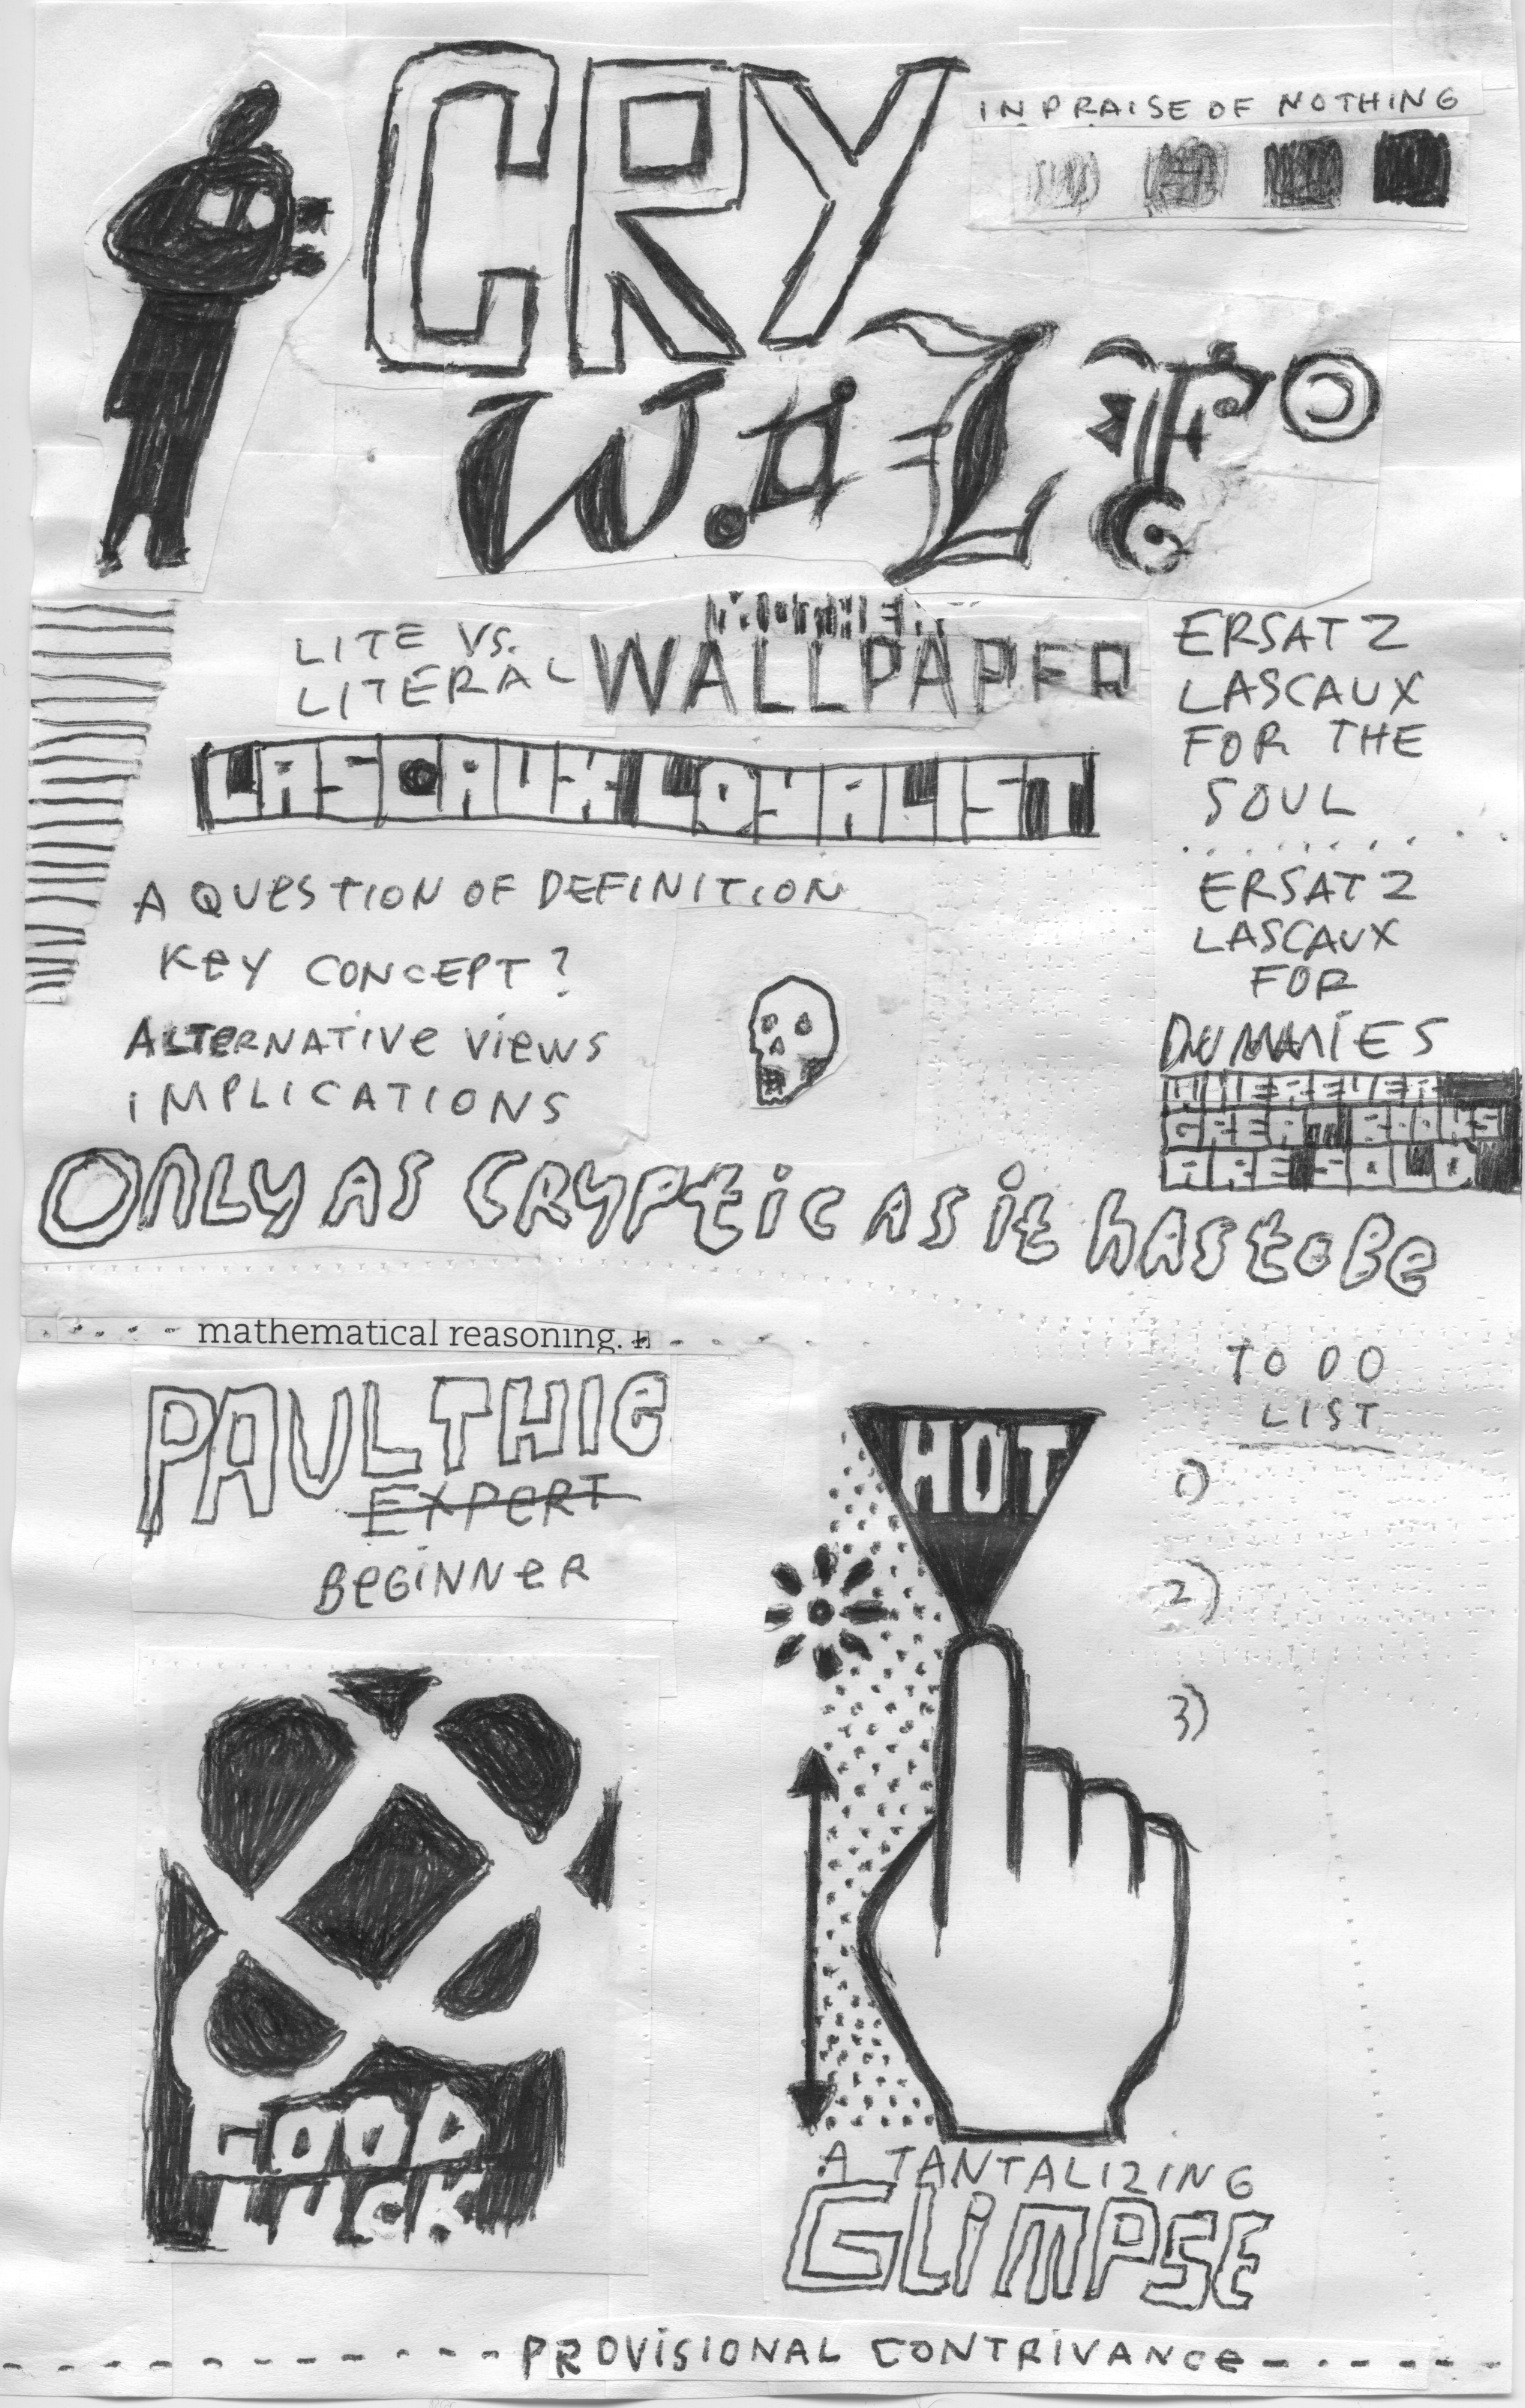 CRY
IN PRAISE OF NOTHING
LITE VS.
LITERAL
WALLPAPER
ERSATZ
LASCAUX
FOR THE
SOUL
ERSATZ
LASCAUX
FOR
DUMMIES
WHEREVER
GREAT BOOKS
ARE SOLD
A QUESTION OF DEFINITION
KEY CONCEPT?
ALTERNATIVE VIEWS
IMPLICATIONS
ONLY AS CRYPTIC AS it hAS to Be
mathematical reasoning.
PAUL THIE
EXPERT
BEGINNER
HOT
TO DO
LIST
1)
2)
3)
GOOD
A TANTALIZING
GLIMPSE
PROVISIONAL CONTRIVANCE